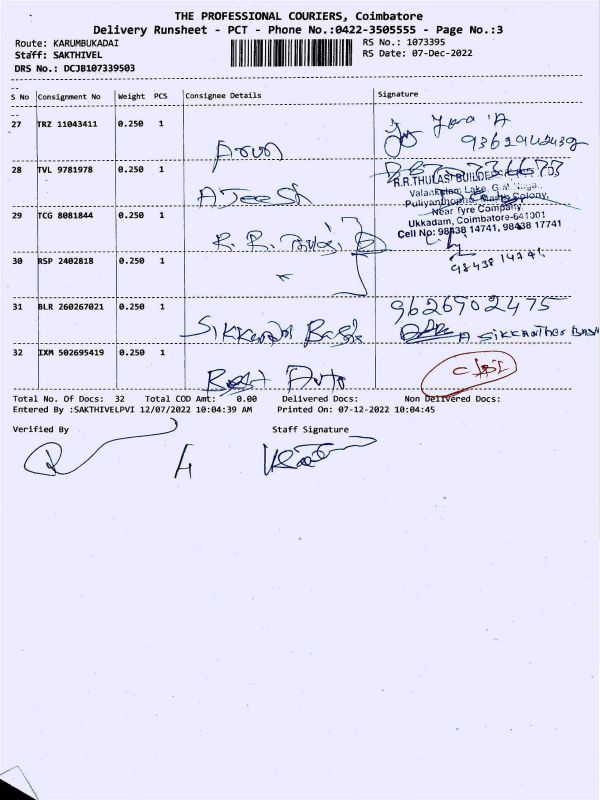 THE PROFESSIONAL COURIERS, Coimbatore
Delivery Runsheet - PCT - Phone No.:0422-3505555 - Page No.:3
Route: KARUMBUKADAI
RS No.: 1073395
Staff: SAKTHIVEL
RS Date: 07-Dec-2022
DRS No.: DCJB107339503
S No Consignment No Weight PCS Consignee Details Signature
27 TRZ 11043411 0.250 1
28 TVL 9781978 0.250 1 AJeesh
R.R.THULASI BUILDERS
Valankulam Lake, G.M.Nagar,
Colony,
Near Tyre Company
Ukkadam, Coimbatore-641001
Cell No: 98438 14741, 98438 17741
29 TCG 8081844 0.250 1 R. R.
98438 14741
30 RSP 2402818 0.250 1
31 BLR 260267021 0.250 1 9626902475
A SIKKANTHER
32 IXM 502695419 0.250 1 Best Auto
Total No. Of Docs: 32 Total COD Amt: 0.00 Delivered Docs: Non Delivered Docs:
Entered By :SAKTHIVELPVI 12/07/2022 10:04:39 AM Printed On: 07-12-2022 10:04:45
Verified By Staff Signature